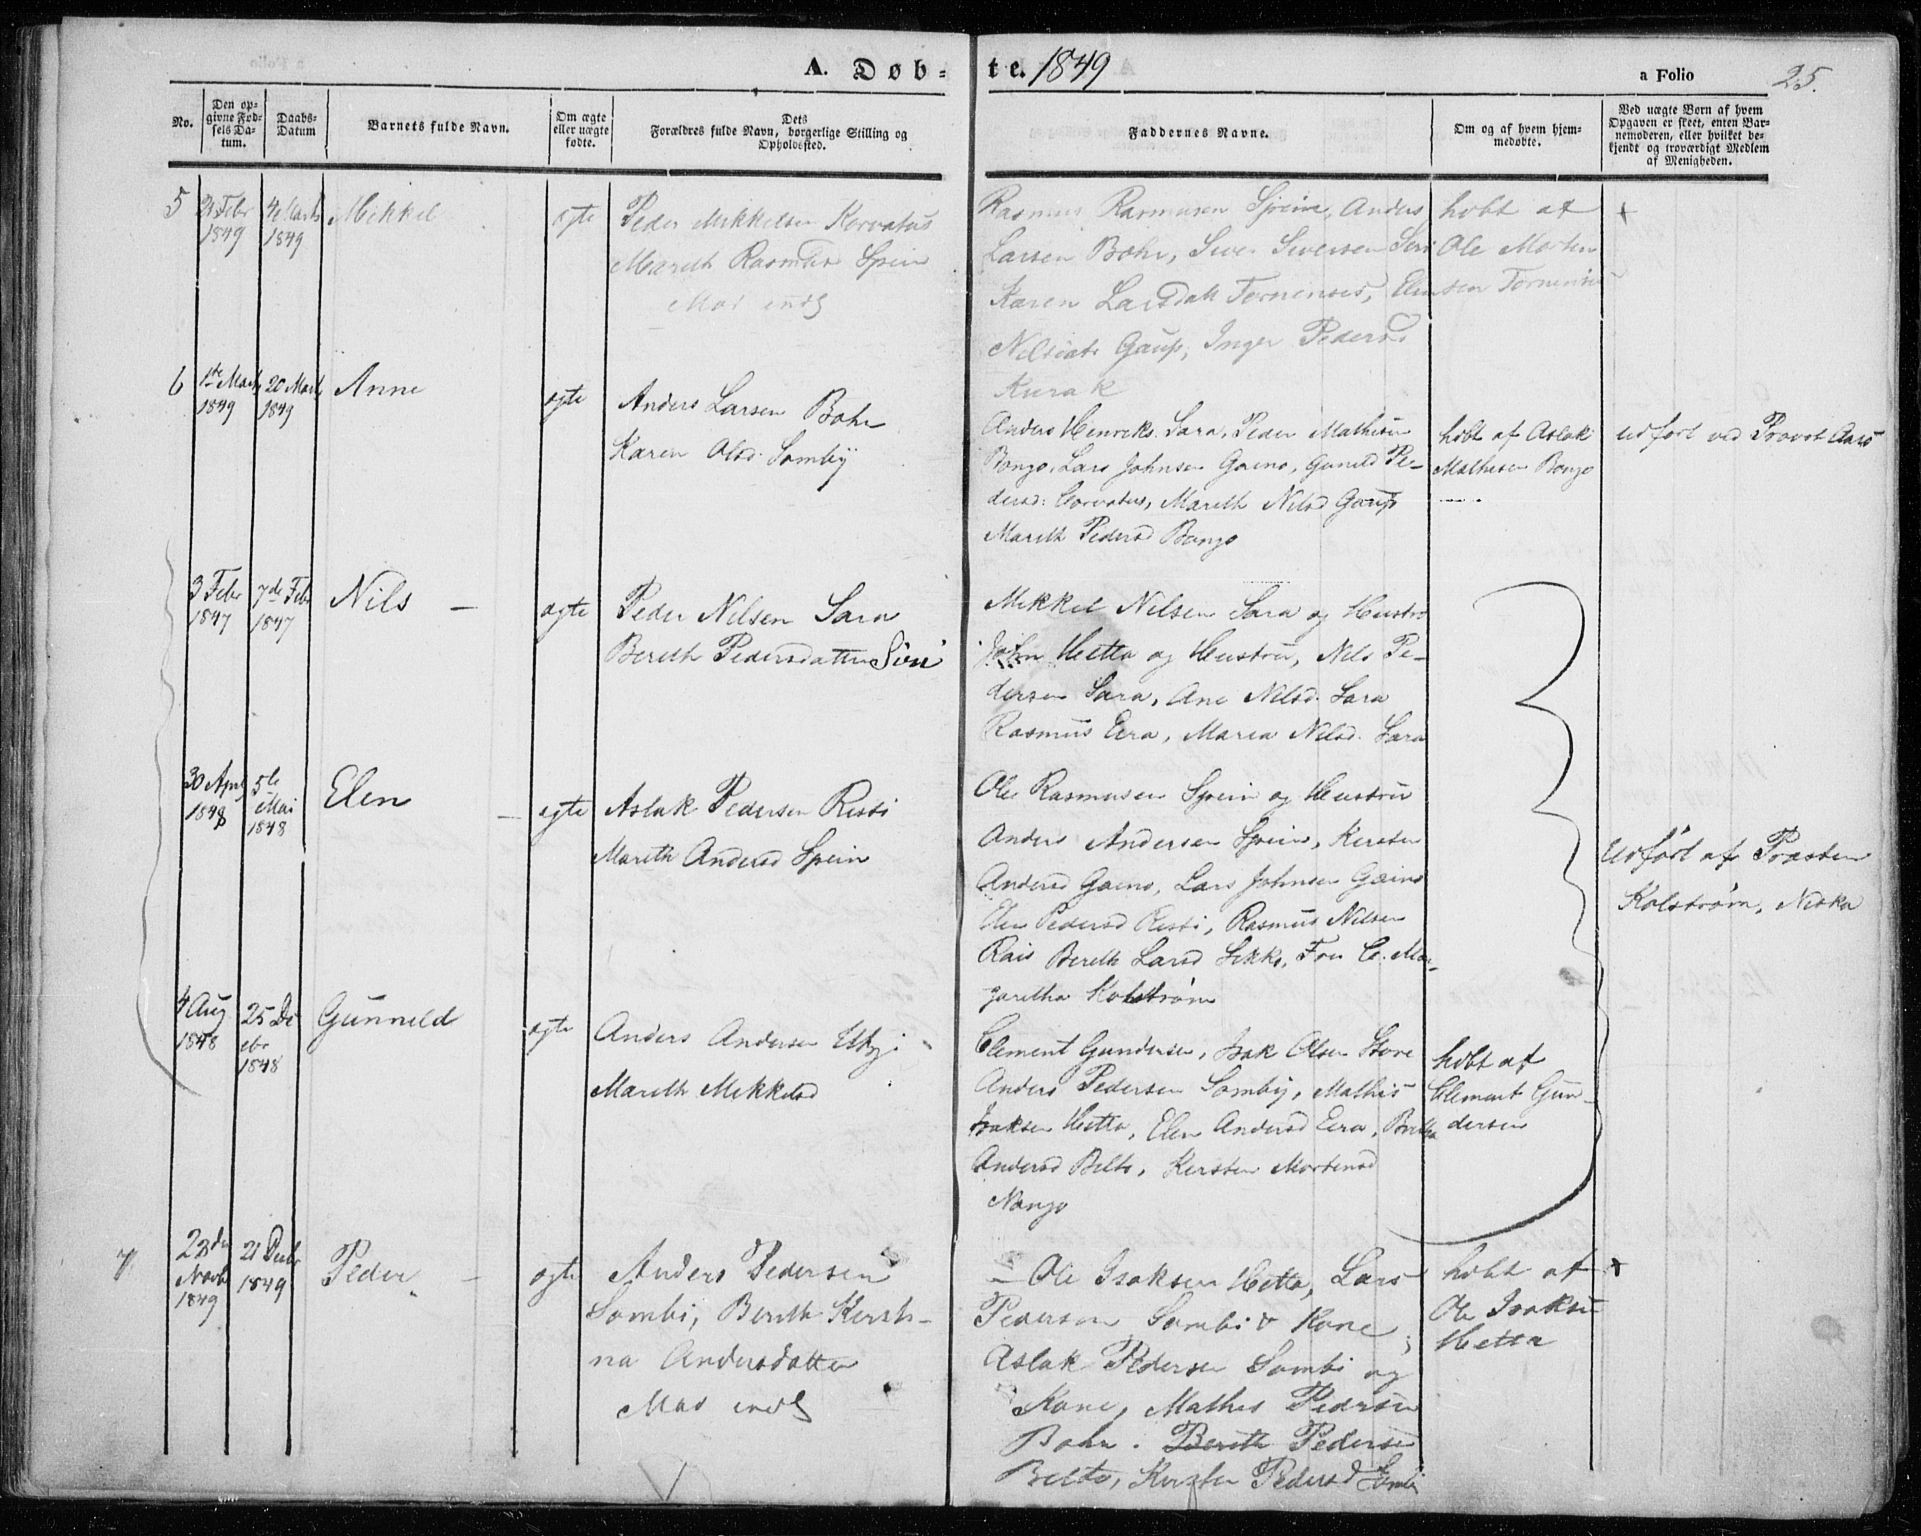 A. Døb-te. 1849
a Folio 25.
No.
Den opgivne Fødsels Datum.
Daabs-Datum
Barnets fulde Navn.
Om ægte eller uægte fødte.
Dets Forældres fulde Navn, borgerlige Stilling og Opholdssted.
Faddernes Navne.
Om og af hvem hjemmedøbte.
Ved uægte Børn af hvem Opgaven er skeet, enten Barnemoderen, eller hvilket bekjendt og troværdigt Medlem af Menigheden.
5
Febr
1849
4 Marts
1849
Mikkel
ægte
Peder Mikkelsen Korvatus
Mareth Rasmusd Spein
Rasmus Rasmusen Spein, Anders
Larsen Bohr, Siver Siversen Siri
Karen Larsdatt Tornensis, Elen
Nilsdatt Gaup, Inger Pedersd
Kurak
hdbt af
Ole Morten
sen Tornensis
+
6
1ste Marts
1849
20 Marts
1849
Anne
ægte
Anders Larsen Bohr
Karen Olsd. Somby
Anders Henriks. Sara, Peder Mathisen
Bongo, Lars Johnsen Gaino, Gunild Pe-
dersd: Corvatus, Mareth Nilsd Gaup
Mareth Pedersd Bongo
hdbt af Aslak
Mathisen Bongo
udført ved Provst Aars
3 Febr
1847
7de Febr
1847
Nils –
ægte
Peder Nilsen Sara
Bereth Pedersdatter Siri
Mikkel Nilsen Sara og Hustro
John Hetta og Hustru, Nils Pe-
dersen Sara, Ane Nilsd. Sara
Rasmus Eera, Maria Nilsd. Sara
30 April
1848
5te
Mai
1848
Elen –
ægte
Aslak Pedersen Risti
Mareth Andersd Spein
Ole Rasmusen Spein og Hustru
Anders Andersen Spein, Kersten
Andersd Gaino, Lars Johnsen Gaino
Elen Pedersd Risti, Rasmus Nilsen
Rais Bereth Larsd Sikko, Fru C. Mar-
garetha Kolstrøm
Udført af Præsten
Kolstrøm,
4 Aug
1848
25 De
cbr
1848
Gunneld
ægte
Anders Andersen Utsi
Mareth Mikkelsd
Clement Gundersen, Isak Olsen Store
Anders Pedersen Somby, Mathis
Isaksen Hetta, Elen Andersd Eera, Britha
Andersd Belto, Kersten Mortensd
Nango
hdbt af
Clement Gun-
dersen
7
23de
Novb
1849
21 Decbr
1849
Peder –
ægte
Anders Pedersen
Sombi, Bereth Kirsti-
na Andersdatter
– Ole Isaksen Hetta, Lars
Pedersen Sombi & Kone,
Aslak Pedersen Sombi og
Kone, Mathis Pedersen
Bohr. Bereth Pedersd
Belto, Kirsten Pedersd Sombi
hdbt af
Ole Isaksen
Hetta
+